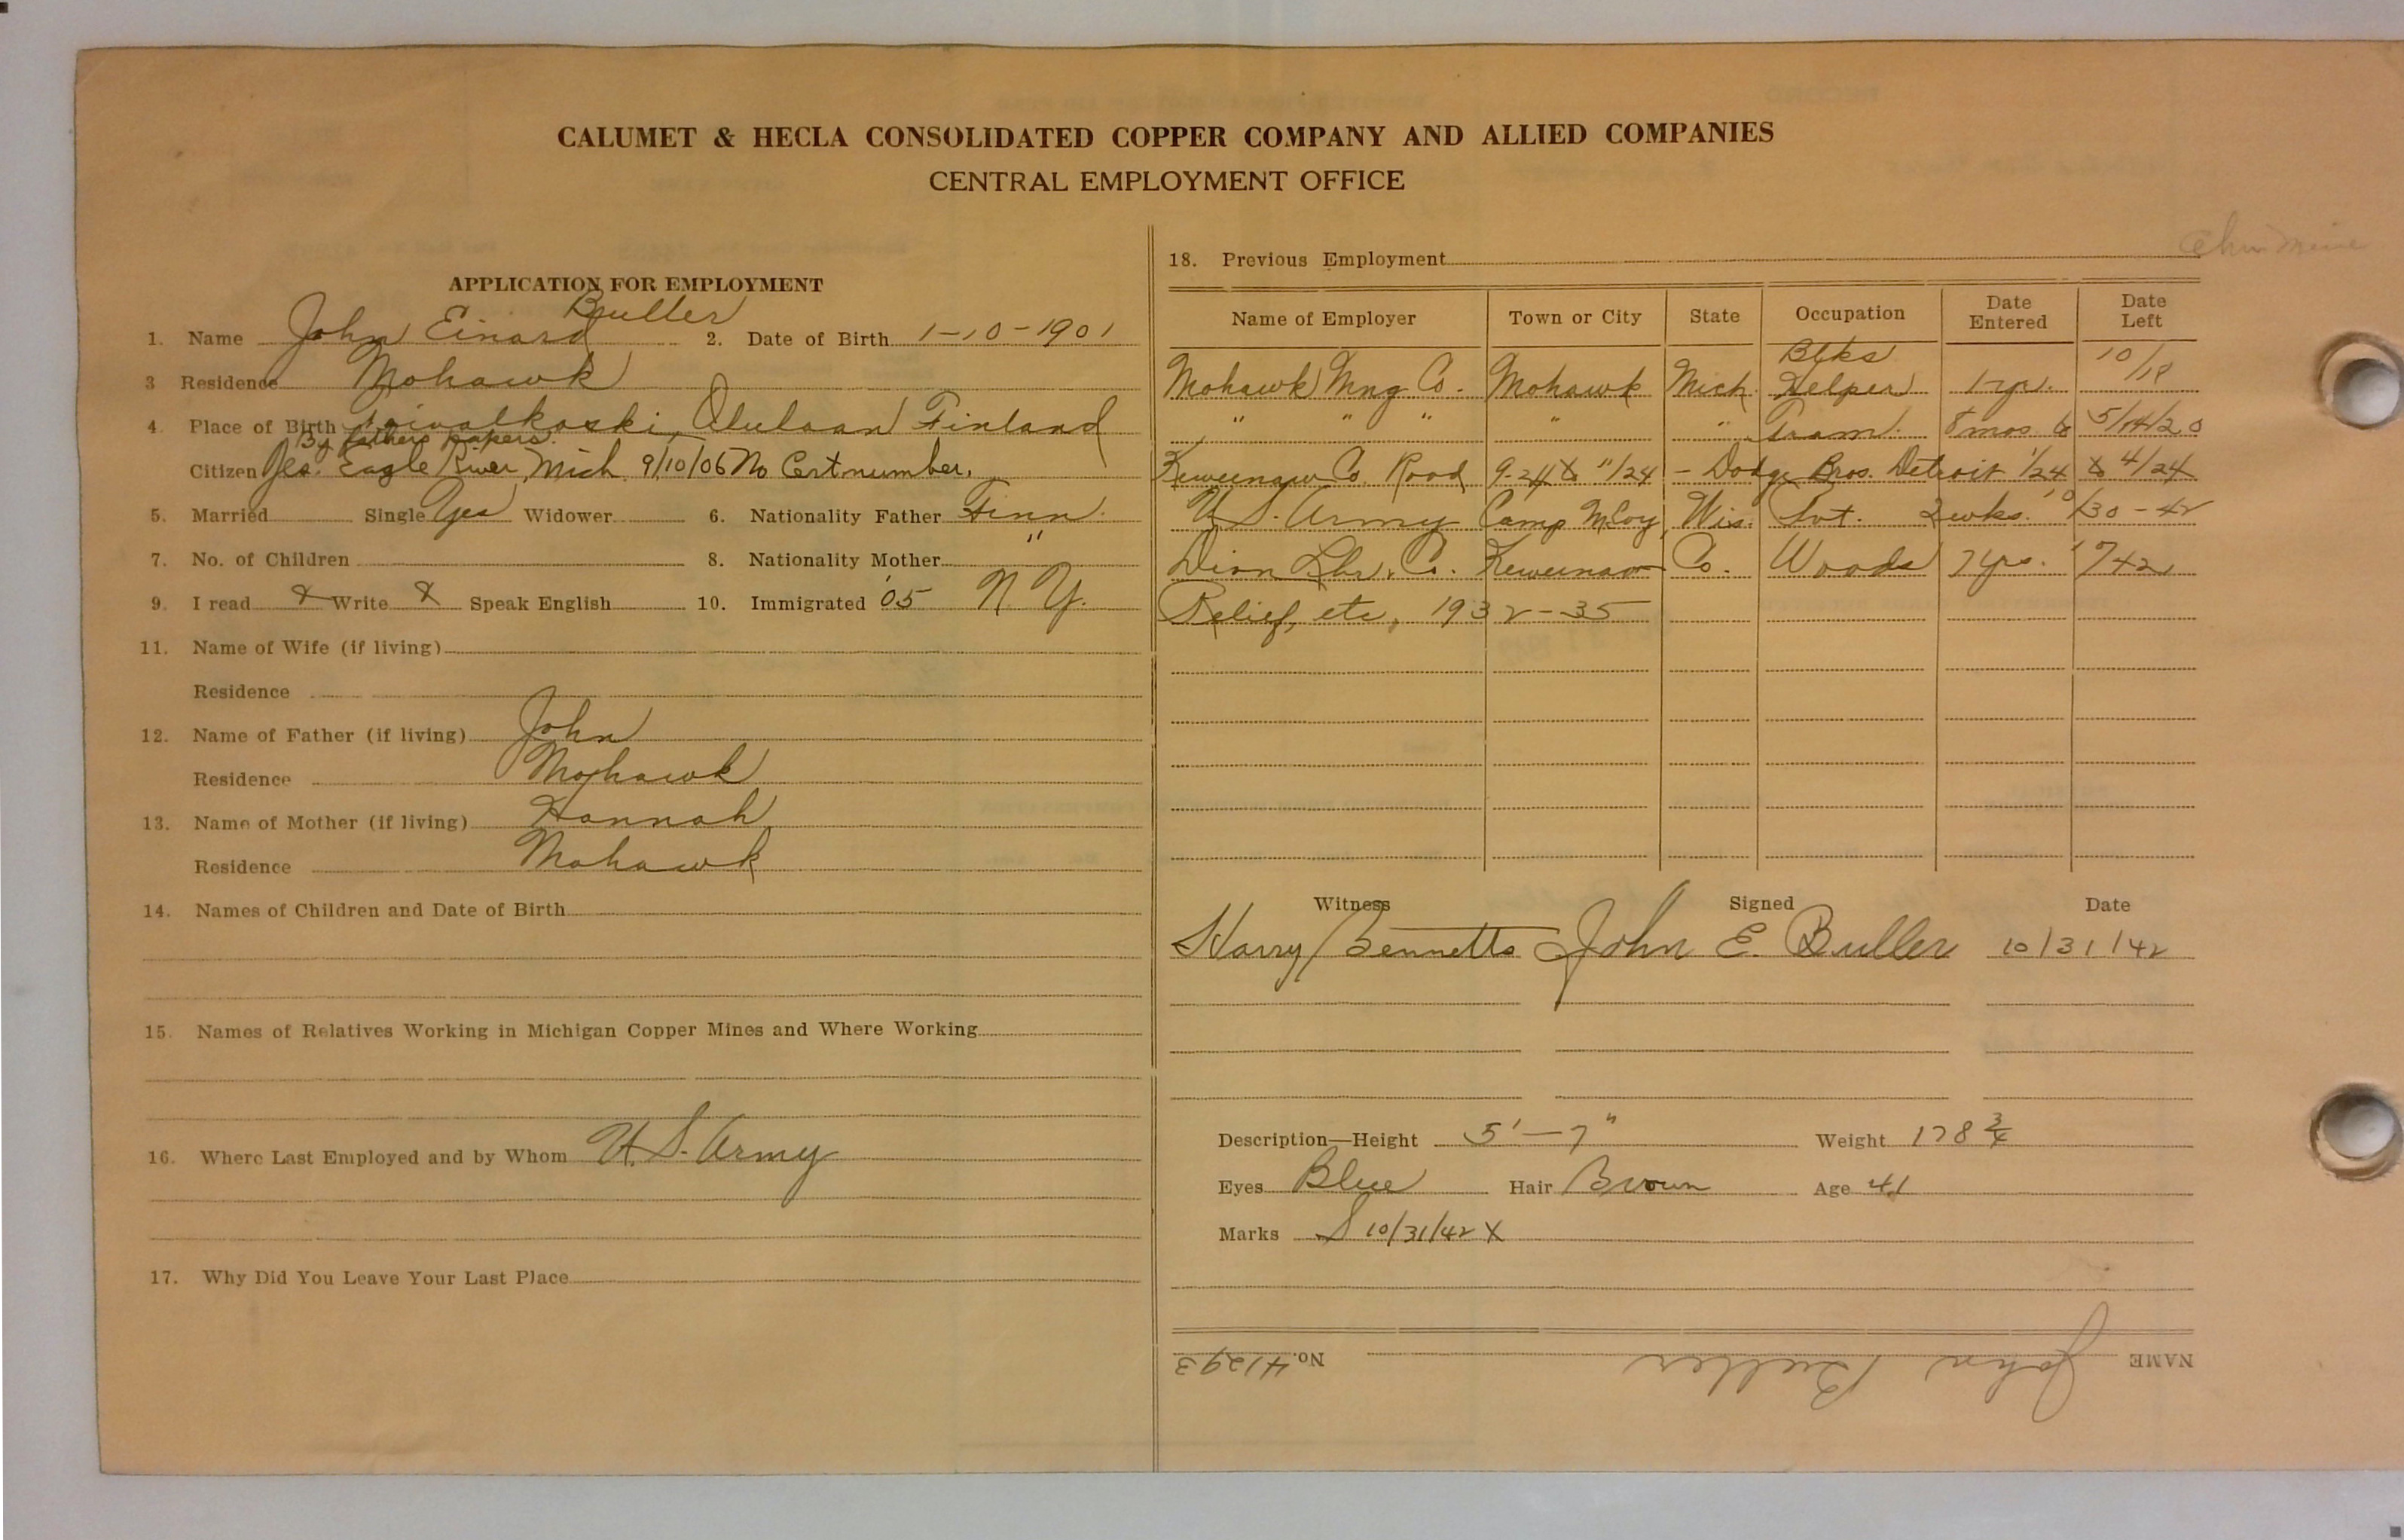 CALUMET & HECLA CONSOLIDATED COPPER COMPANY AND ALLIED COMPANIES
CENTRAL EMPLOYMENT OFFICE
APPLICATION FOR EMPLOYMENT
1. Name John Einard Buller 2. Date of Birth 1-10-1901
3 Residence Mohawk
4. Place of Birth Finland
By fathers papers.
Citizen Yes. Eagle River, Mich 9/10/06 No Cert number.
5. Married Single Yes Widower 6. Nationality Father Finn.
7. No. of Children 8. Nationality Mother "
9. I read X Write X Speak English 10. Immigrated '05 N.Y.
11. Name of Wife (if living)
Residence
12. Name of Father (if living) John
Residence Mohawk
13. Name of Mother (if living) Hannah
Residence Mohawk
14. Names of Children and Date of Birth
15. Names of Relatives Working in Michigan Copper Mines and Where Working
16. Where Last Employed and by Whom U.S. Army
17. Why Did You Leave Your Last Place
18. Previous Employment
Name of Employer Town or City State Occupation Date Entered Date Left
Mohawk Mng Co. Mohawk Mich. Blks Helper 1 yr. 10/18
" " " " " Tram. 8 mos. to 5/14/20
Keweenaw Co. Road 9-24 to 11/24 - Dodge Bros. Detroit 1/24 to 4/24
U.S. Army Camp McCoy, Wis. Pvt. 2 wks. 10/30-42
Keweenaw Co. Woods 7 yrs.
Relief, etc, 1932-35
Witness Signed Date
Harry Bennetts John E. Buller 10/31/42
Description—Height 5'-7" Weight 178 3/4
Eyes Blue Hair Brown Age 41
Marks S 10/31/42 X
NAME John Buller No. 41293